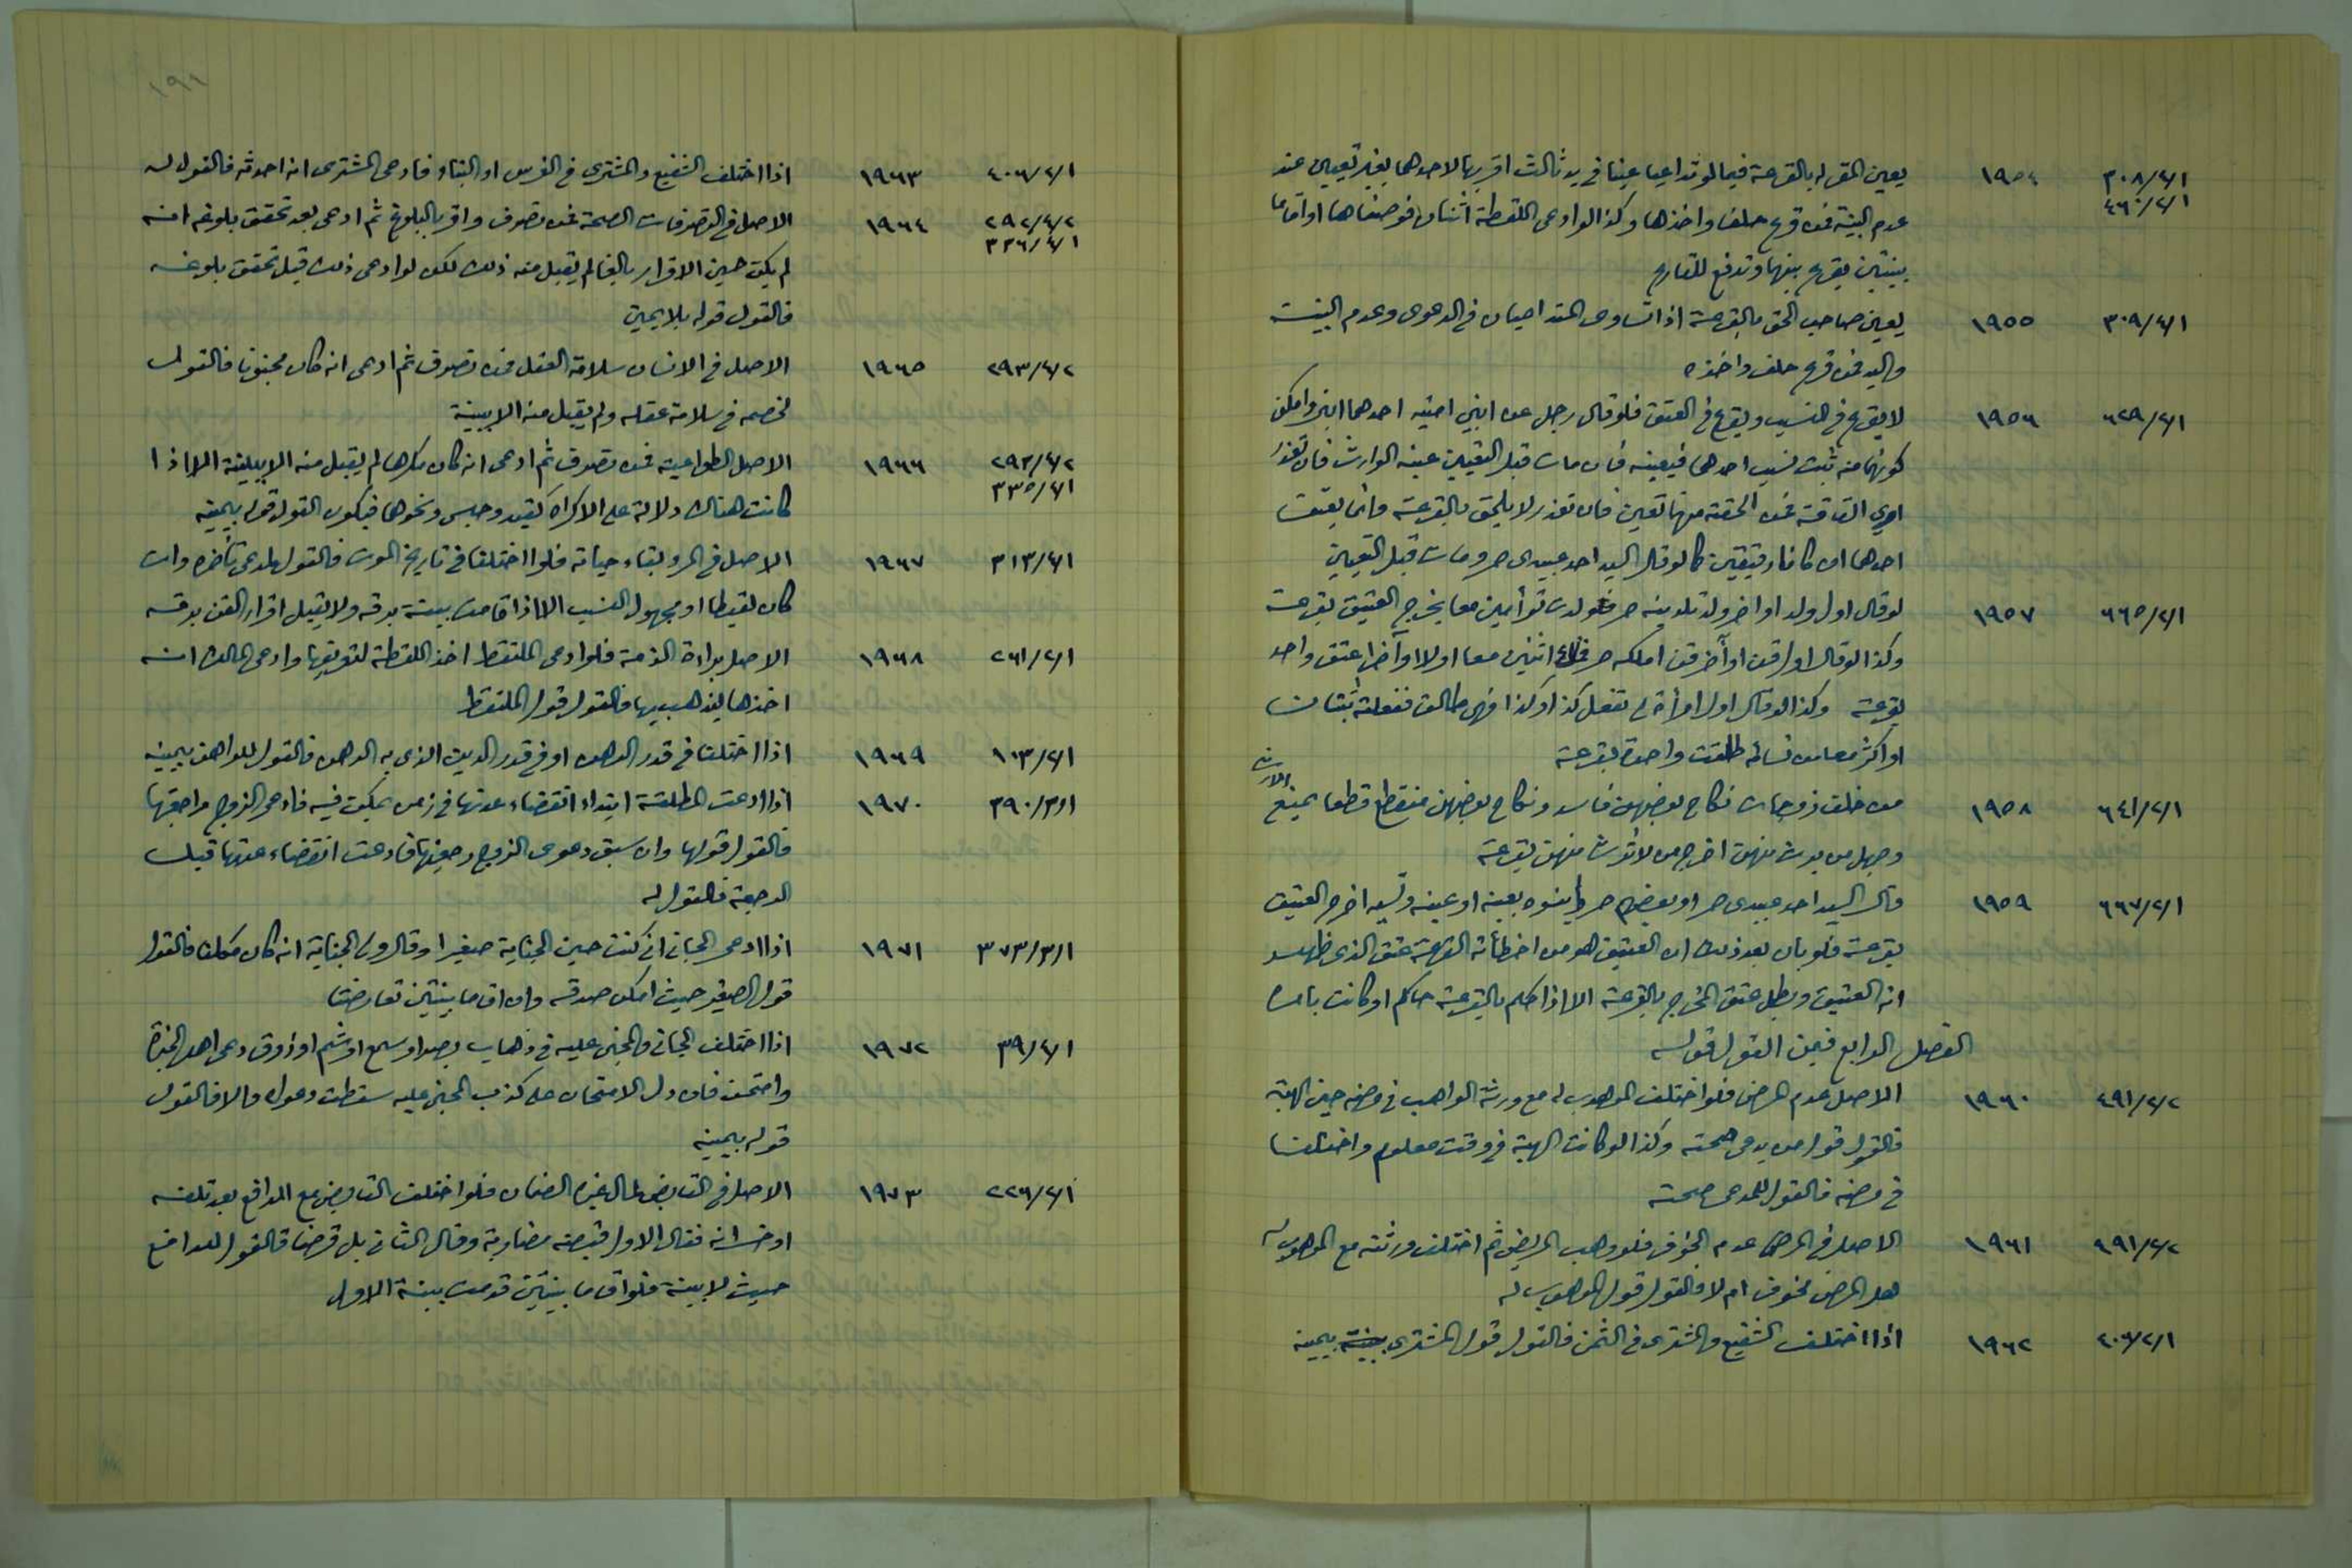 ٣٠٨/٤/١ ١٩٥٤ يعين المقر له بالقرعة فيما لو تداعيا عينا في يد ثالث اقر بها لاحدهما بغير تعيين عند
٤٦٠/٢/١ عدم البينة فمن قرع حلف واخذها وكذا لو ادعى اللقطة اثنان فوصفاها او اقاما
بينتين يقرع بينهما وتدفع للقارع
٣٠٩/٤/١ ١٩٥٥ يعين صاحب الحق بالقرعة اذا تساوى المتداعيان في الدعوى وعدم البينة
واليد فمن قرع حلف واخذه
٦٢٩/٢/١ ١٩٥٦ لا يقرع في النسب ويقرع في العتق فلو قال رجل عن ابني امته احدهما ابني وامكن
كونهما منه ثبت نسب احدهما فيعينه فان مات قبل التعيين عينه الوارث فان تعذر
اري القافة فمن الحقته منهما تعين فان تعذر لا يلحق بالقرعة وانما يعتق
احدهما ان كانا رقيقين كما لو قال السيد احد عبيدي حر ومات قبل التعيين
٦٦٥/٢/١ ١٩٥٧ لو قال اول ولد او اخر ولد تلدينه حر فولدت توأمين معا يخرج العتيق بقرعة
وكذا لو قال اول قن او آخر قن املكه حر فملك اثنين معا اولا او آخرا عتق واحد
بقرعة وكذا لو قال اول امرأة لي تفعل كذا او كذا فهي طالق ففعلته ثنتان
او اكثر معا من نسائه طلقت واحدة بقرعة
٦٤١/٢/١ ١٩٥٨ من خلف زوجات نكاح بعضهن فاسد ونكاح بعضهن منقطع قطعا يمنع الارث
وجهل من يرث منهن اخرج من لا ترث منهن بقرعة
٦٦٧/٢/١ ١٩٥٩ قال السيد احد عبيدي حر او بعضهم حر ولم ينوه بعينه او عينه ونسيه اخرج العتيق
بقرعة فلو بان بعد ذلك ان العتيق هو من اخطأته القرعة عتق الذي ظهر
انه العتيق وبطل عتق المخرج بالقرعة الا اذا حكم بالقرعة حاكم او كانت بامره
الفصل الرابع فيمن القول قوله
٤٩١/٢/٢ ١٩٦٠ الاصل عدم المرض فلو اختلف الموهوب له مع ورثة الواهب في مرضه حين الهبة
فالقول قول من يدعى صحته وكذا لو كانت الهبة في وقت معلوم واختلفا
في مرضه فالقول للمدعى صحته
٤٩١/٢/٢ ١٩٦١ الاصل في المرض عدم الخوف فلو وهب المريض ثم اختلف ورثته مع الموهوب له
هل المرض مخوف ام لا فالقول قول الموهوب له
٤٠٦/٢/١ ١٩٦٢ اذا اختلف الشفيع والمشتري في الثمن فالقول قول المشتري بيمينه
١٩١
٤٠٦/٢/١ ١٩٦٣ اذا اختلف الشفيع والمشتري في الغرس او البناء فادعى المشتري انه احدثه فالقول له
٢٩٢/٤/٢ ١٩٦٤ الاصل في التصرفات الصحة فمن تصرف واقر بالبلوغ ثم ادعى بعد تحقق بلوغه انه
٣٣٦/٤/١ لم يكن حين الاقرار بالغا لم يقبل منه ذلك لكن لو ادعى ذلك قبل تحقق بلوغه
فالقول قوله بلا يمين
٢٩٣/٤/٢ ١٩٦٥ الاصل في الانسان سلامة العقل فمن تصرف ثم ادعى انه كان مجنونا فالقول
لخصمه في سلامة عقله ولم يقبل منه الا ببينة
٢٩٣/٤/٢ ١٩٦٦ الاصل الطواعية فمن تصرف ثم ادعى انه كان مكرها لم يقبل منه الا ببينة الا اذا
٣٣٥/٤/١ كانت هناك دلالة على الاكراه كقيد وحبس ونحوها فيكون القول قوله بيمينه
٣١٣/٤/١ ١٩٦٧ الاصل في المرء بقاء حياته فلو اختلفا في تاريخ الموت فالقول لمدعي تأخره وان
كان لقيطا او مجهول النسب الا اذا قامت بينة برقه ولا يقبل اقرار القن برقه
٢٦١/٢/١ ١٩٦٨ الاصل براءة الذمة فلو ادعى الملتقط اخذ اللقطة لتعريفها وادعى المالك انه
اخذها ليذهب بها فالقول قول الملتقط
١٠٣/٢/١ ١٩٦٩ اذا اختلفا في قدر الرهن او في قدر الدين الذي به الرهن فالقول للراهن بيمينه
٣٩٠/٣/١ ١٩٧٠ اذا ادعت المطلقة ابتداء انقضاء عدتها في زمن يمكن فيه فادعى الزوج مراجعتها
فالقول قولها وان سبق دعوى الزوج رجعتها فادعت انقضاء عدتها قبل
الرجعة فالقول له
٣٧٣/٣/١ ١٩٧١ اذا ادعى الجاني اني كنت حين الجناية صغيرا وقال ولي الجناية انه كان مكلفا فالقول
قول الصغير حيث امكن صدقه وان اقاما بينتين تعارضتا
٣٩/٤/١ ١٩٧٢ اذا اختلف الجاني والمجني عليه في ذهاب بصر او سمع او شم او ذوق دعى اهل الخبرة
وامتحن فان دل الامتحان على كذب المجني عليه سقطت دعواه والا فالقول
قوله بيمينه
٢٢٦/٢/١ ١٩٧٣ الاصل في القابض لمال غيره الضمان فلو اختلف القابض مع الدافع بعد تلفه
او خسرانه فقال الاول قبضته مضاربة وقال الثاني بل قرضا فالقول للدافع
حيث لا بينة فلو اقاما بينتين قدمت بينة الاول